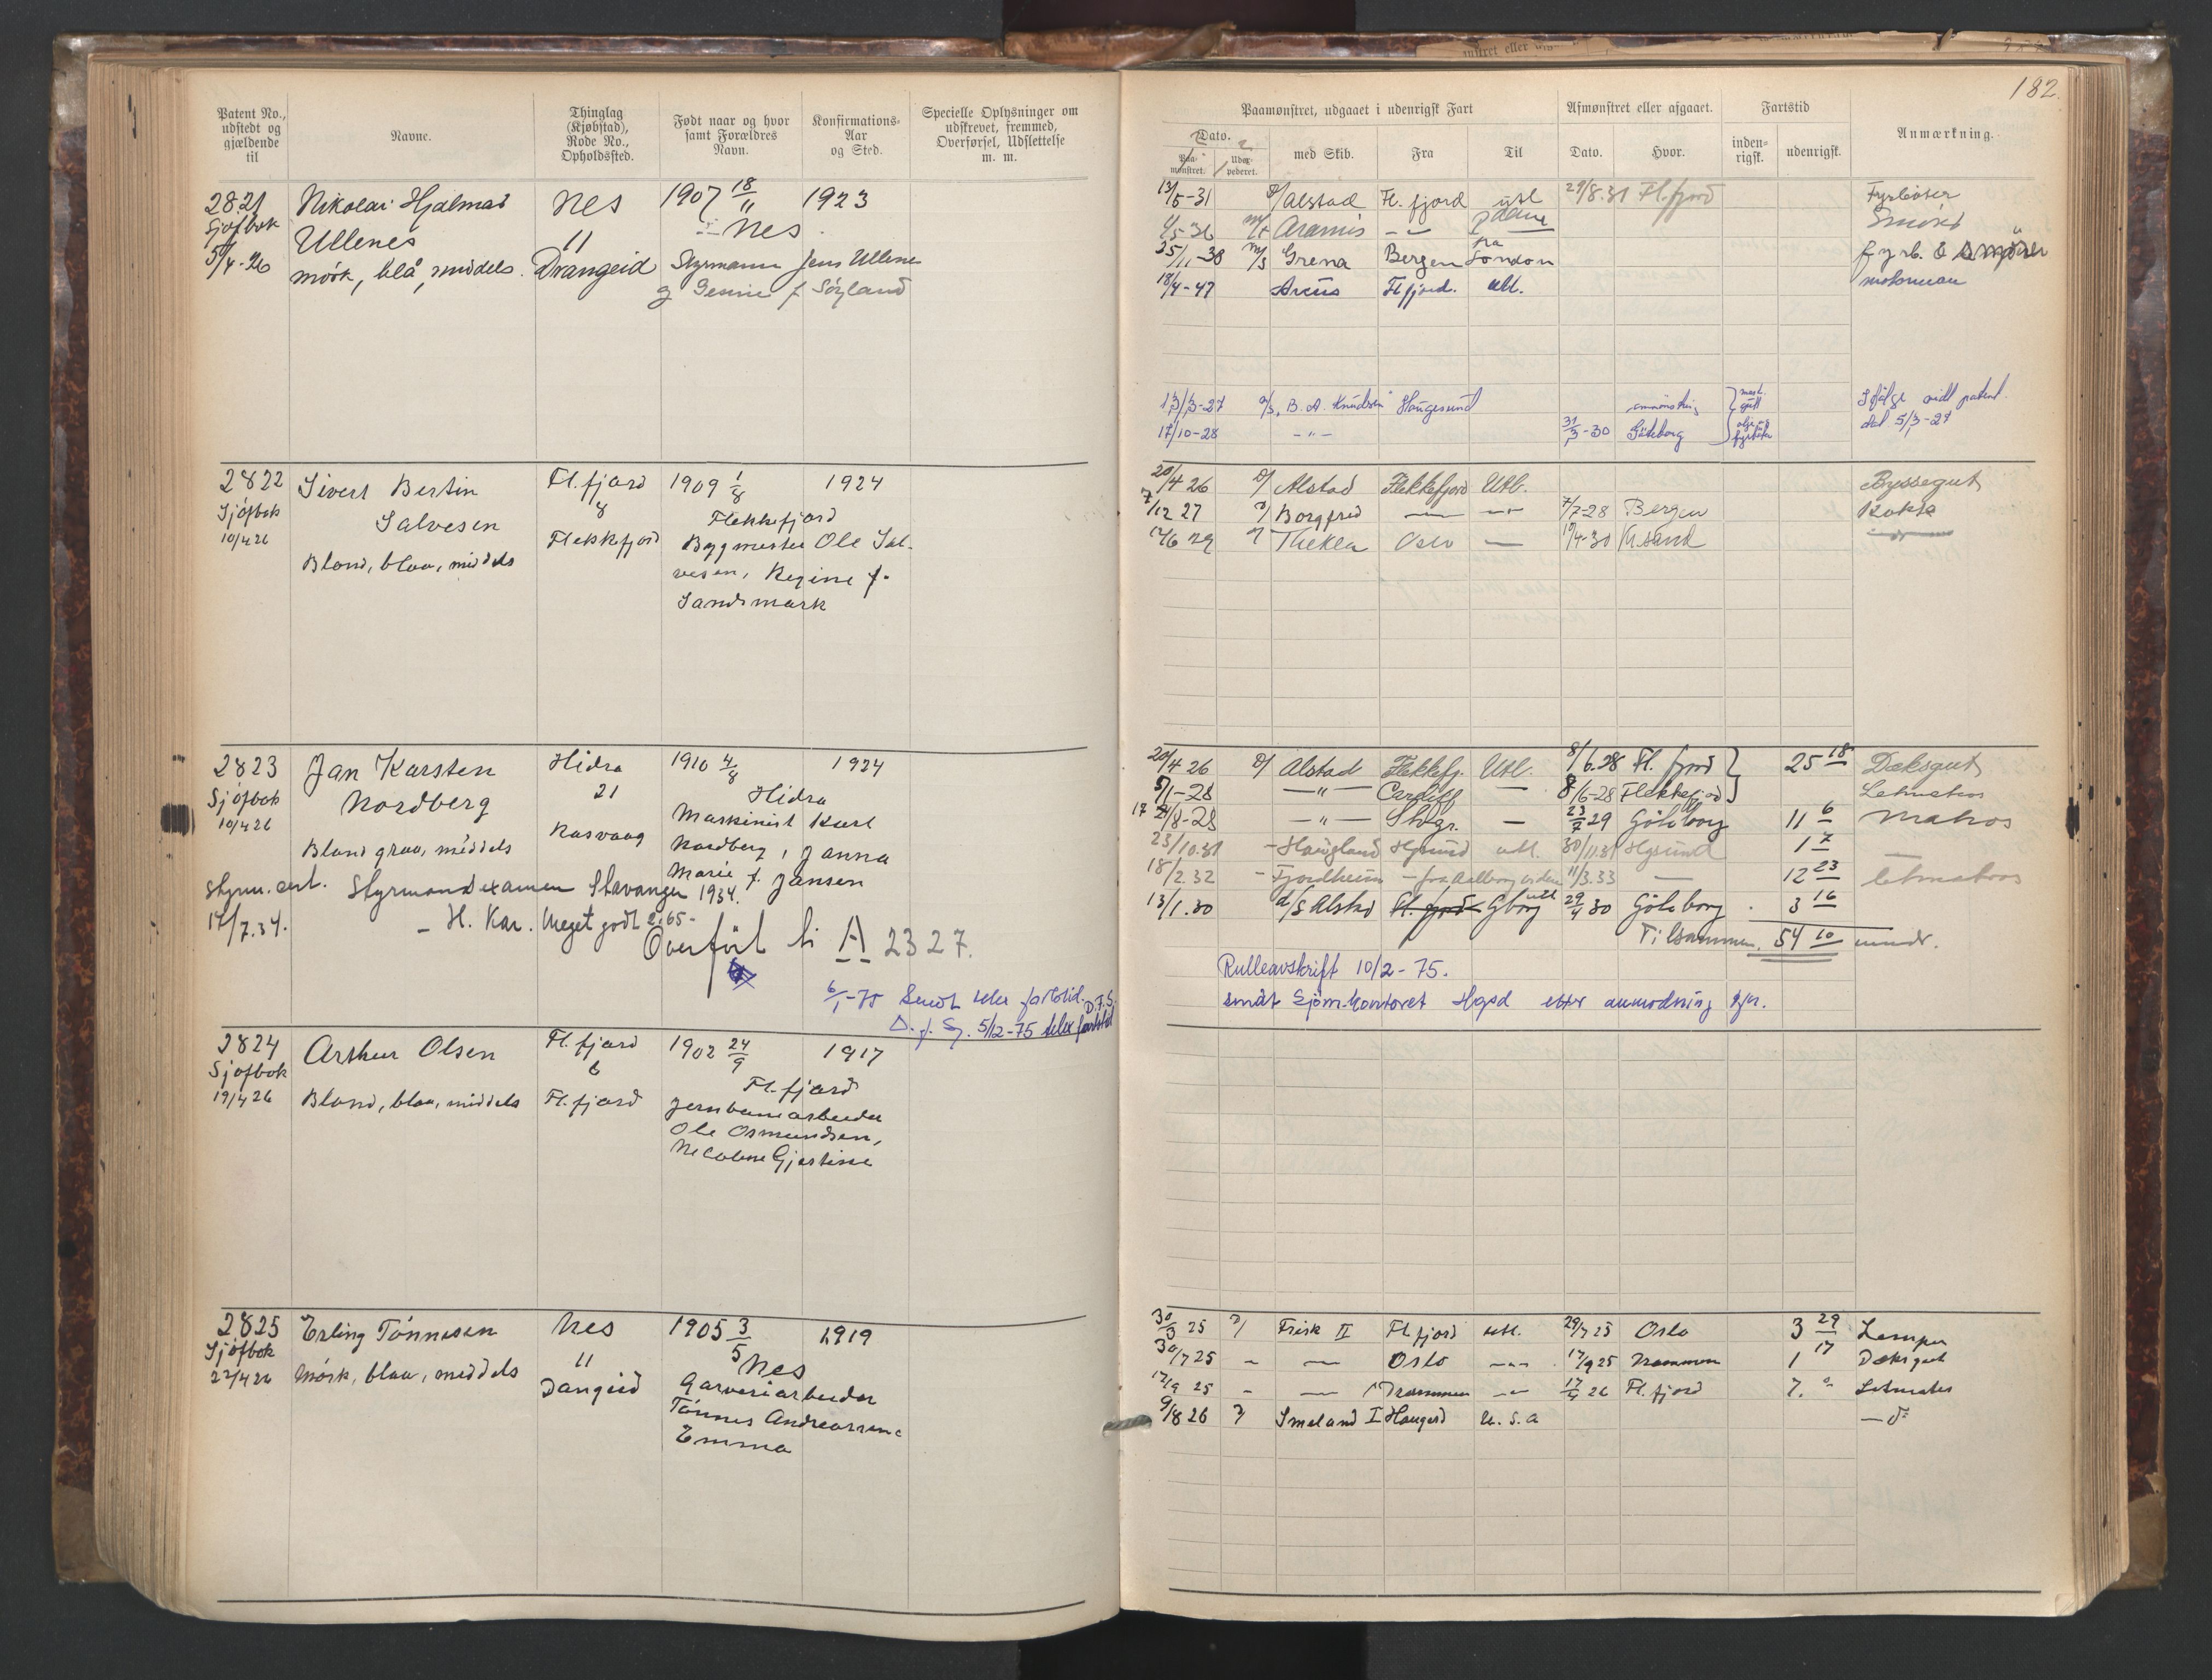 182.
Patent No., udstedt og gjældende til
Navne.
Thinglag (Kjøbstad), Rode No., Opholdssted.
Født naar og hvor samt Forældres Navn.
Konfirmations-Aar og Sted.
Specielle Oplysninger om udskrevet, fremmed, Overførsel, Udslettelse m. m.
Paamønstret, udgaaet i udenrigsk Fart
Afmønstret eller afgaaet.
Fartstid
Anmærkning.
Dato.
Paamønstret.
med Skib.
Fra
Til
Dato.
Hvor.
indenrigsk.
udenrigsk.
2821 Nikolai Hjalmar Nes 1907 18/11 1923
Sjøfbok Ullenes 11 Nes
5/4-26 mörk, blå, middels. Drangeid Styrmann Jens Ullenes
og Genine f. Söyland
12/5-31 Alstad Fl.fjord utl 29/8.31 Fl.fjord Fyrböter
4/5-36 m/t Aramis
25/11-38 m/s Grena Bergen fra London fyrb.
18/4-47 Arcus Fl fjord. utl. motorman
13/3-27 B. A. Knudsen Haugesund Ifølge patent
17/10-28 – " – 31/3-30 Göteborg dat 5/3-27
2822 Sivert Bertin Fl.fjord 1909 1/8 1924
Sjöfbok Salvesen 8 Flekkefjord
10/4 26 Blond, blaa, middels Flekkefjord Byggmester Ole Sal-
vesen, Regine f.
Sandsmark
20/4 26 D/ Alstad Flekkefjord Utl. Byssegut
7/12 27 Borgfred 7/7-28 Bergen Kokk
12/6 29 Thekla Oslo — 17/4-30 Kr.sand
2823 Jan Karsten Hidra 1910 4/8 1924
Sjöfbok Nordberg 21 Hidra
10/4 26 Maskinist Karl
Blond graa, middels Rasvaag Nordberg, Janna
Marie f. Jansen
Styrm. cert. Styrmandexamen Stavanger 1934.
17/7.34. – H. Kar. Meget godt 2.65-
Overført til A 2327.
6/1-75 Sendt telex fartstid. D.F.S.
5/12-75 telex fartstid
20/4 26 D/ Alstad Flekkefj. Utl. 8/6.28 Fl. fjord 25 18 Dæksgut
5/1-28 —"— Cardiff — 8/6-28 Flekkefjord Letmatros
—"— — 23/7 29 Göteborg 11 6 Matros
23/10.31 – Haugland Hgsund utl. 30/11.31 Hgsund 1 7
18/2.32 – Fjordheim – fra Aalborg 11/3.33 — 12 23 letmatros
13/1.30 d/s Alstad Fl. fjord Gborg utl 29/4 30 Göteborg 3 16
Tilsammen 54 10 mndr.
Rulleavskrift 10/2-75.
Sjöm.kontoret Hgsd etter anmodning
2824 Arthur Olsen Fl.fjord 1902 24/9 1917
Sjöfbok 6 Fl.fjord
19/4 26 Blond, blaa, middels Fl.fjord Jernbanearbeider
Ole Osmundsen,
2825 Erling Tönnesen Nes 1905 3/5 1919
Sjöfbok 11 Nes
22/4 26 Mörk, blaa, middels Dangeid Garveriarbeider
Tönnes Andreassen
Emma
30/3 25 Frisk II Fl.fjord utl. 29/7 25 Oslo 3 29 Lemper
30/7 25 – — Oslo — 17/9 25 Drammen 1 17 Dæksgut
17/9 25 – — Drammen — 17/4 26 Fl.fjord 7. Letmatros
9/8 26 Smeland I Haugesd U.S.A